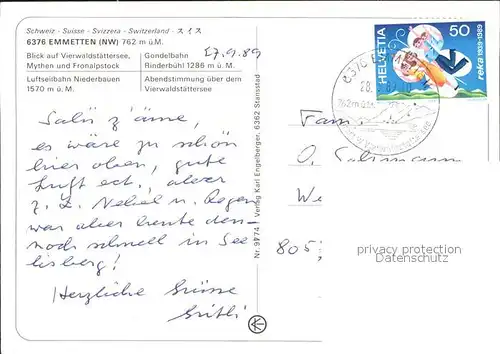 Schweiz - Suisse - Svizzera - Switzerland - スイス
6376 EMMETTEN (NW) 762 m ü.M.
Blick auf Vierwaldstättersee,
Mythen und Fronalpstock
Luftseilbahn Niederbauen
1570 m ü. M.
Gondelbahn
Rinderbühl 1286 m ü. M.
Abendstimmung über dem
Vierwaldstättersee
27.9.89
Salü z'äme,
es wäre zu schön
hier oben, gute
Luft ect., aber
z. Z. Nebel u. Regen
war aber heute den-
noch schnell in See
lisberg!
Herzliche Grüsse
Nr. 9774 Verlag Karl Engelberger, 6362 Stansstad
HELVETIA
50
reka 1939-1989
6376 E
762 m ü.M.
Fam.
O.
We
805
privacy protection
Datenschutz